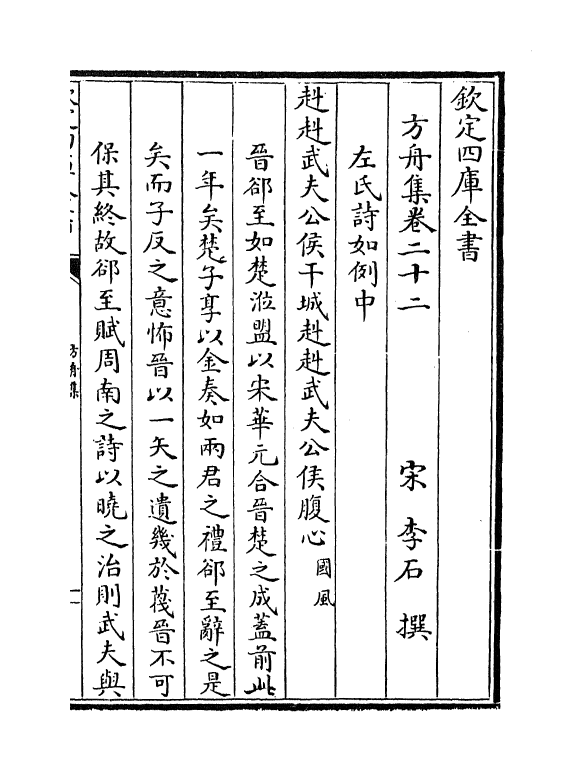 欽定四庫全書
方舟集卷二十二　宋　李石　撰
左氏詩如例中
赳赳武夫公侯干城赳赳武夫公侯腹心國風
晉郤至如楚涖盟以宋華元合晉楚之成蓋前此
一年矣楚子享以金奏如兩君之禮郤至辭之是
矣而子反之意怖晉以一矢之遺幾於蔑晉不可
保其終故郤至賦周南之詩以曉之治則武夫與
方舟集